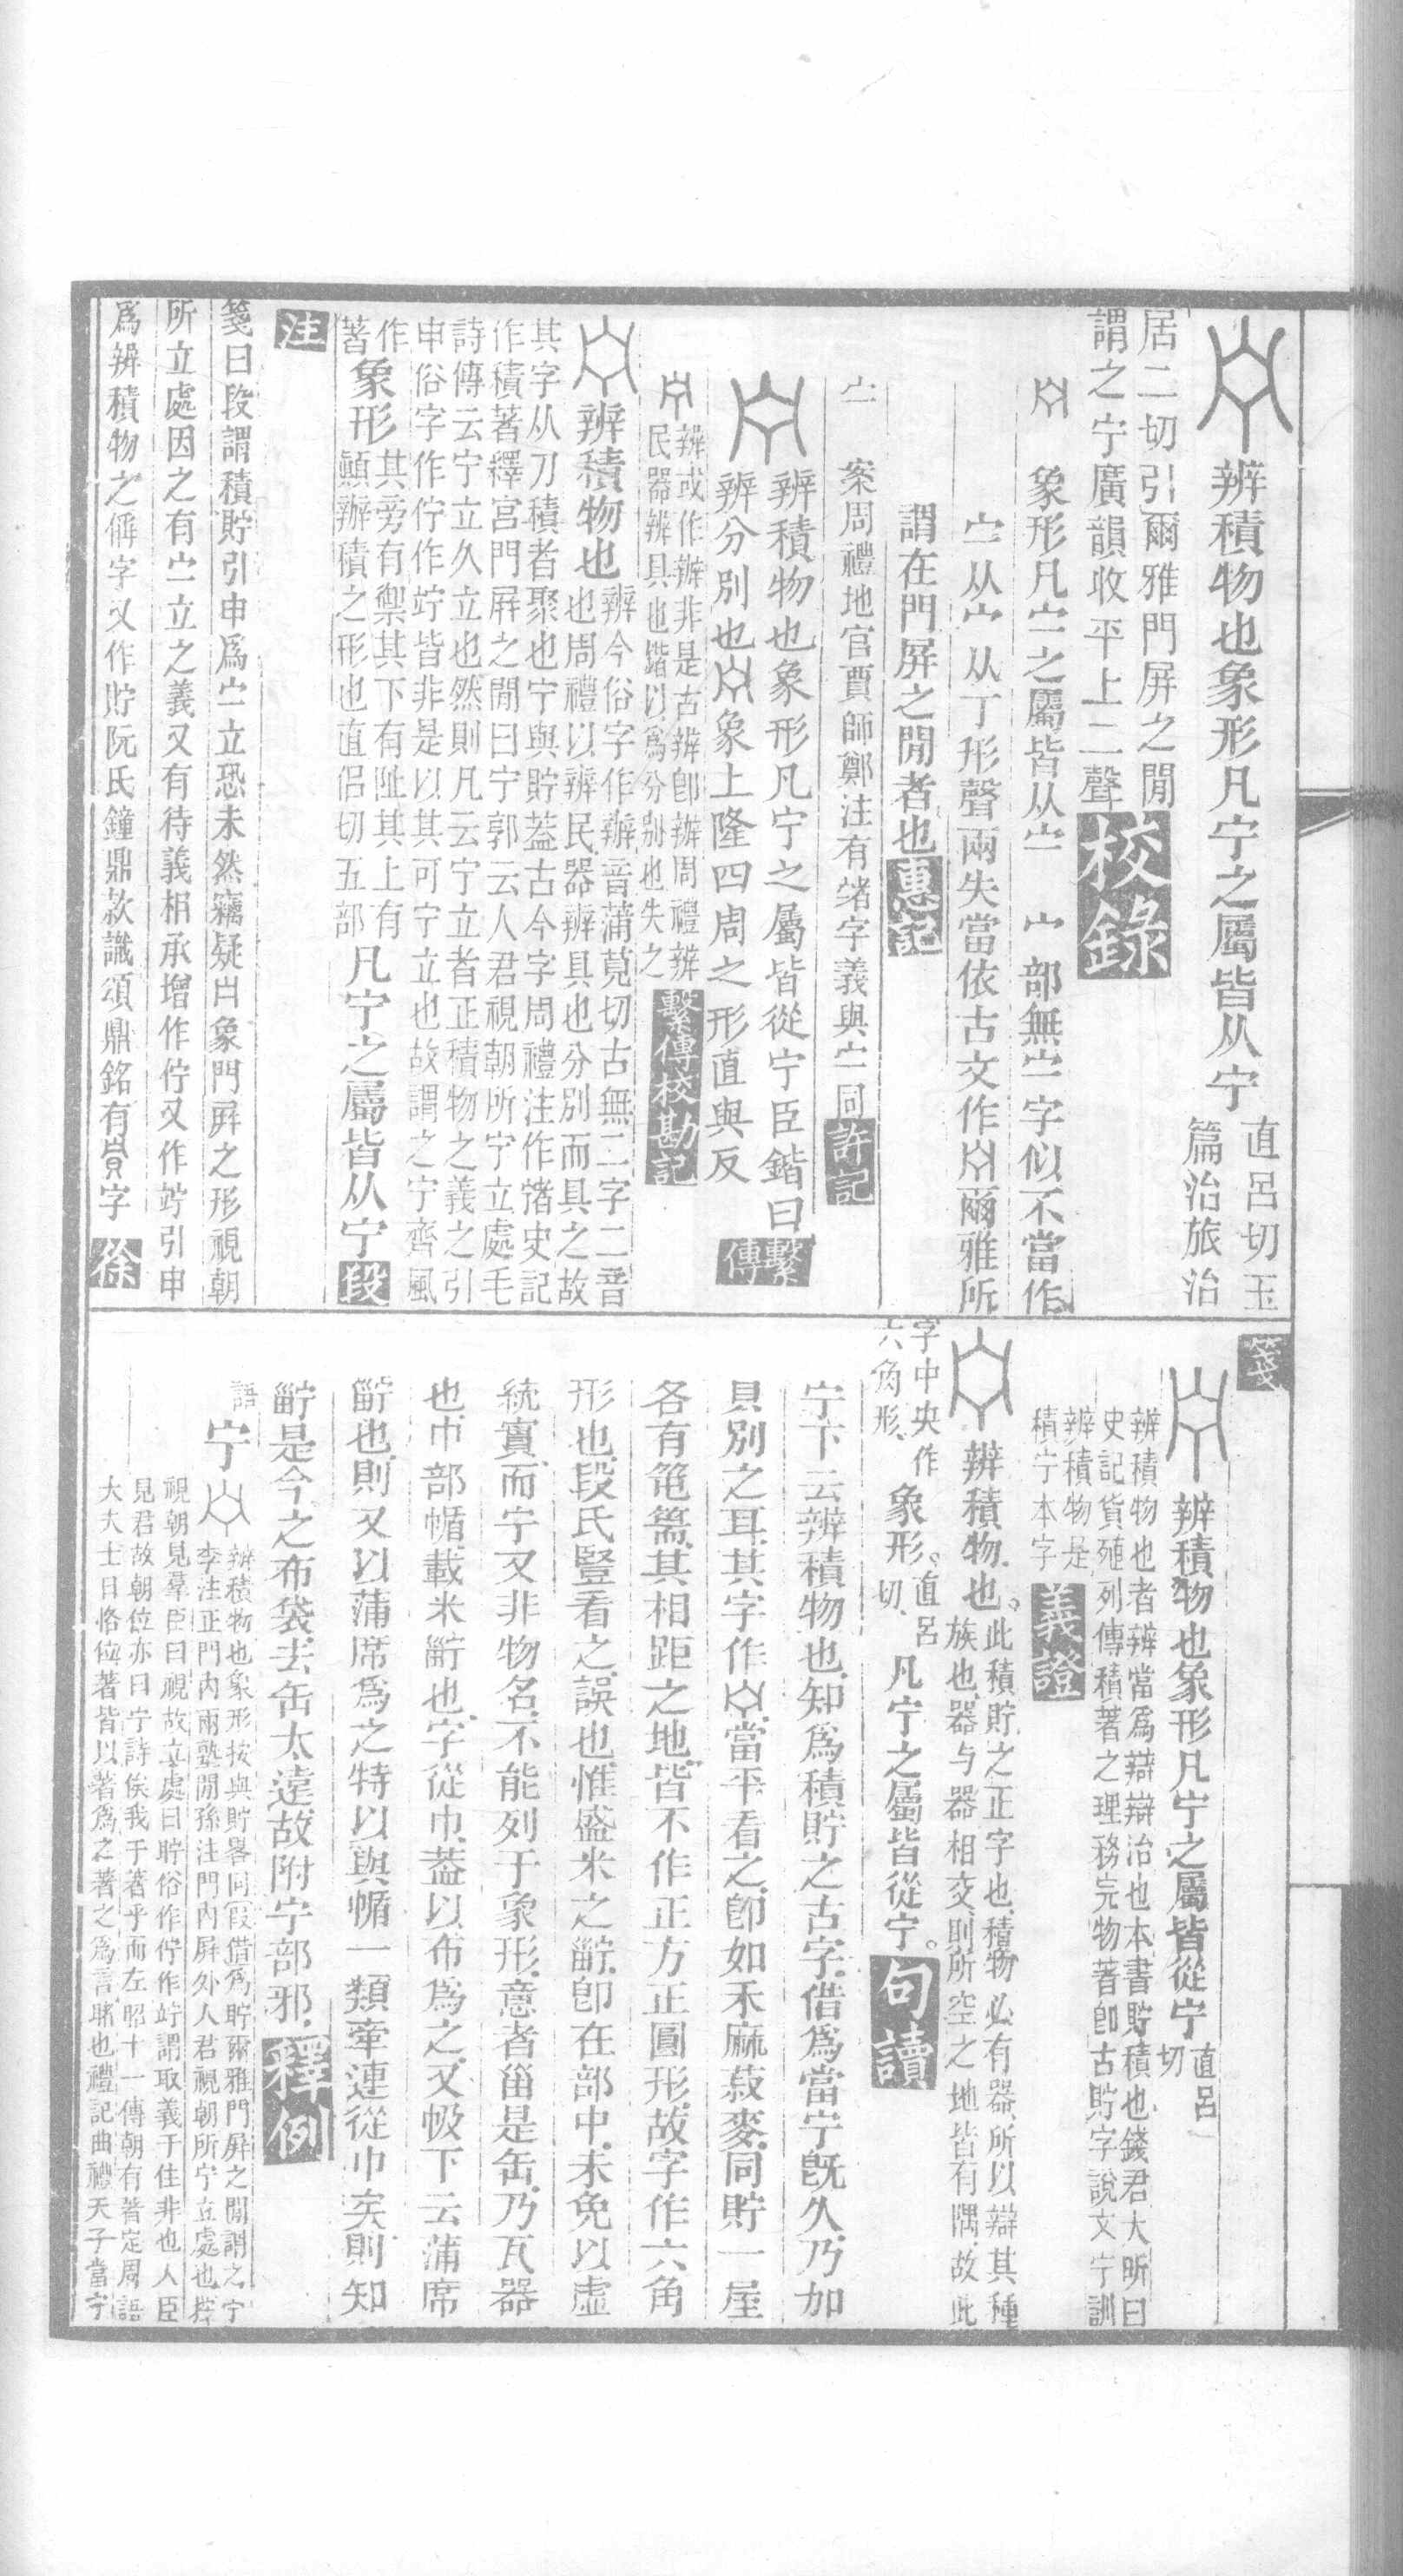 辨積物也象形凡宁之屬皆从宁
直呂切玉
篇治旅治
居二切引爾雅門屏之閒
謂之宁廣韻收平上二聲
校錄
象形凡宁之屬皆从宁 宀部無宁字似不當作
宁从宀从丁形聲兩失當依古文作 爾雅所
謂在門屏之閒者也
惠記
宁 案周禮地官賈師鄭注有 字義與宁同
許記
辨積物也象形凡宁之屬皆從宁臣鍇曰
辨分別也 象上隆四周之形直與反
繫傳
辨或作辦非是古辨卽辦周禮辨
民器辨具也鍇以爲分別也失之
繫傳校勘記
辨積物也
辨今俗字作辦音蒲莧切古無二字二音
也周禮以辨民器辨具也分別而具之故
其字从刀積者聚也宁與貯蓋古今字周禮注作 史記
作積著釋宮門屛之閒曰宁郭云人君視朝所宁立處毛
詩傳云宁立久立也然則凡云宁立者正積物之義之引
申俗字作佇作竚皆非是以其可宁立也故謂之宁齊風
作
著
象形
其旁有禦其下有阯其上有
顚辦積之形也直侶切五部
凡宁之屬皆从宁
段
注
箋曰段謂積貯引申爲宁立恐未然竊疑 象門屛之形視朝
所立處因之有宁立之義又有待義相承增作佇又作竚引申
爲辨積物之偁字又作貯阮氏鐘鼎款識頌鼎銘有 字
徐
箋
辨積物也象形凡宁之屬皆從宁
直呂
切
辨積物也者辨當爲辯辯治也本書貯積也錢君大昕曰
史記貨殖列傳積著之理務完物著卽古貯字說文宁訓
辨積物是
積宁本字
義證
辨積物也。
此積貯之正字也積物必有器所以辯其種
族也器与器相交則所空之地皆有隅故此
字中央作
六角形
象形。
直呂
切
凡宁之屬皆從宁。
句讀
宁下云辨積物也知爲積貯之古字借爲當宁旣久乃加
貝別之耳其字作 當平看之卽如禾麻菽麥同貯一屋
各有笹篅其相距之地皆不作正方正圓形故字作六角
形也段氏豎看之誤也惟盛米之㽈卽在部中未免以虛
統實而宁又非物名不能列于象形意者甾是缶乃瓦器
也巾部㡒載米㽈也字從巾蓋以布爲之又㠲下云蒲席
㽈也則又以蒲席爲之特以與㡒一類牽連從巾矣則知
㽈是今之布袋去缶太遠故附宁部邪
釋例
語
宁
辨積物也象形按與貯畧同叚借爲貯爾雅門屏之閒謂之宁
李注正門內兩塾閒孫注門內屏外人君視朝所宁立處也按
視朝見羣臣曰視故立處曰貯俗作佇作竚謂取義于住非也人臣
見君故朝位亦曰宁詩俟我于著乎而左昭十一傳朝有著定周語
大夫士日恪位著皆以著爲之著之爲言 也禮記曲禮天子當宁